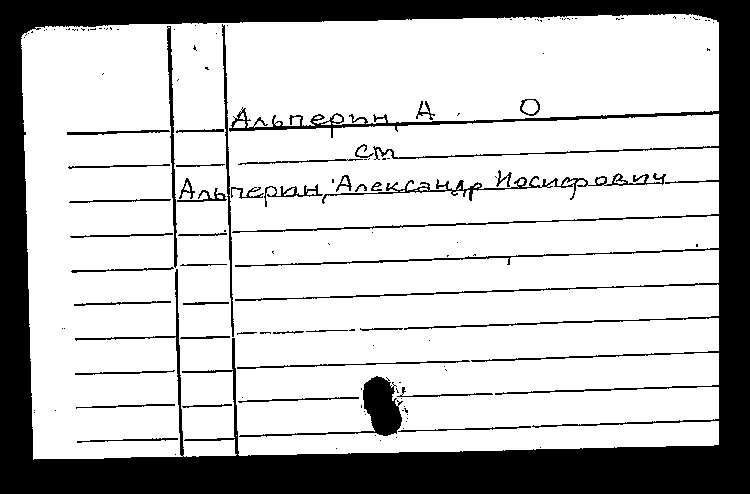 Альперин, А. О
ст
Альперин, Александр Иосифович